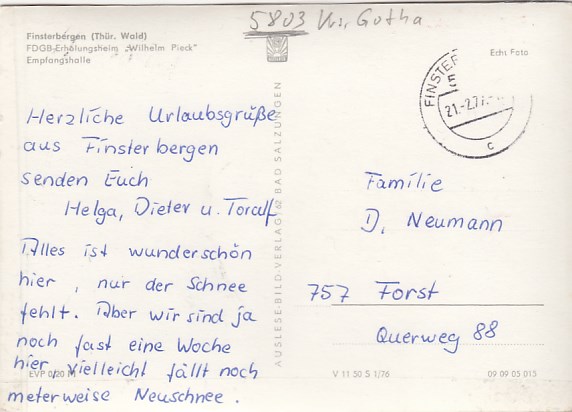 5803 Kr. Gotha
Finsterbergen (Thür. Wald)
FDGB-Erholungsheim "Wilhelm Pieck"
Empfangshalle
Echt Foto
Herzliche Urlaubsgrüße
aus Finsterbergen
senden Euch
Helga, Dieter u. Toralf
Alles ist wunderschön
hier, nur der Schnee
fehlt. Aber wir sind ja
noch fast eine Woche
hier, vielleicht fällt noch
meterweise Neuschnee.
AUSLESE-BILD-VERLAG 62 BAD SALZUNGEN
FINSTER
21.-2.77
c
Familie
D. Neumann
757 Forst
Querweg 88
EVP 0,20 M
V 11 50 S 1/76
09 09 05 013